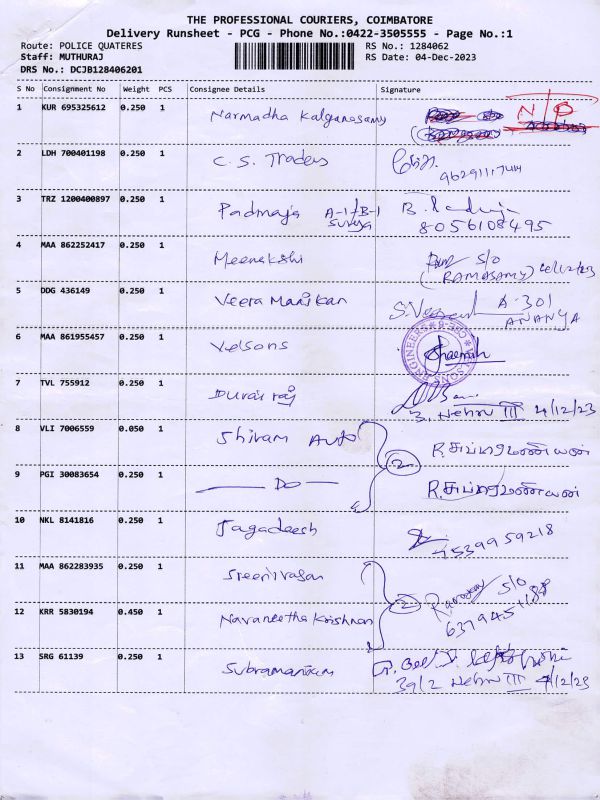 THE PROFESSIONAL COURIERS, COIMBATORE
Delivery Runsheet - PCG - Phone No.:0422-3505555 - Page No.:1
Route: POLICE QUATERES RS No.: 1284062
Staff: MUTHURAJ RS Date: 04-Dec-2023
DRS No.: DCJB128406201
S No Consignment No Weight PCS Consignee Details Signature
1 KUR 695325612 0.250 1 Narmadha Kalyanasamy N D
2 LDH 700401198 0.250 1 C. S. Traders
3 TRZ 1200400897 0.250 1 Padmaja A-1/B-1
Surya 8056108495
4 MAA 862252417 0.250 1 Meenakshi S/O
(RAMASAMY)
5 DDG 436149 0.250 1 Veera Manikan A-301
ANANYA
6 MAA 861955457 0.250 1 Velsons
7 TVL 755912 0.250 1 Durai raj
3, Nehru III 4/12/23
8 VLI 7006559 0.050 1 Shivam Auto R.சுப்ரமணியன்
2
9 PGI 30083654 0.250 1 — Do — R.சுப்ரமணியன்
10 NKL 8141816 0.250 1 Jagadeesh
9539959218
11 MAA 862283935 0.250 1 Sreenivasan S/O
2
12 KRR 5830194 0.450 1 Navaneetha Krishnan
13 SRG 61139 0.250 1 Subramanium
39/2 Nehru III 4/12/23